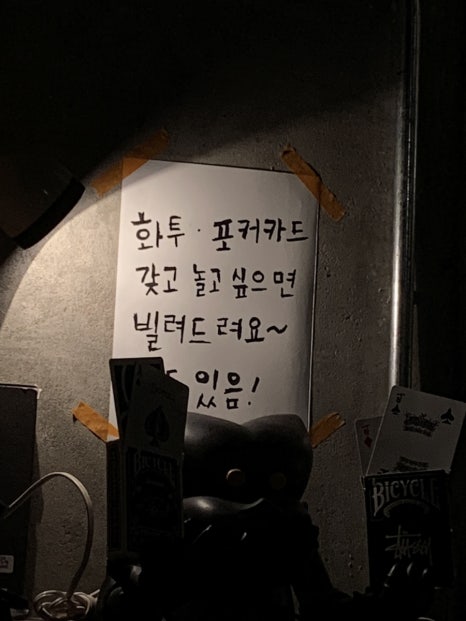 화투 · 포커카드
갖고 놀고 싶으면
빌려드려요~
있음!
BICYCLE
BICYCLE
STÜSSY